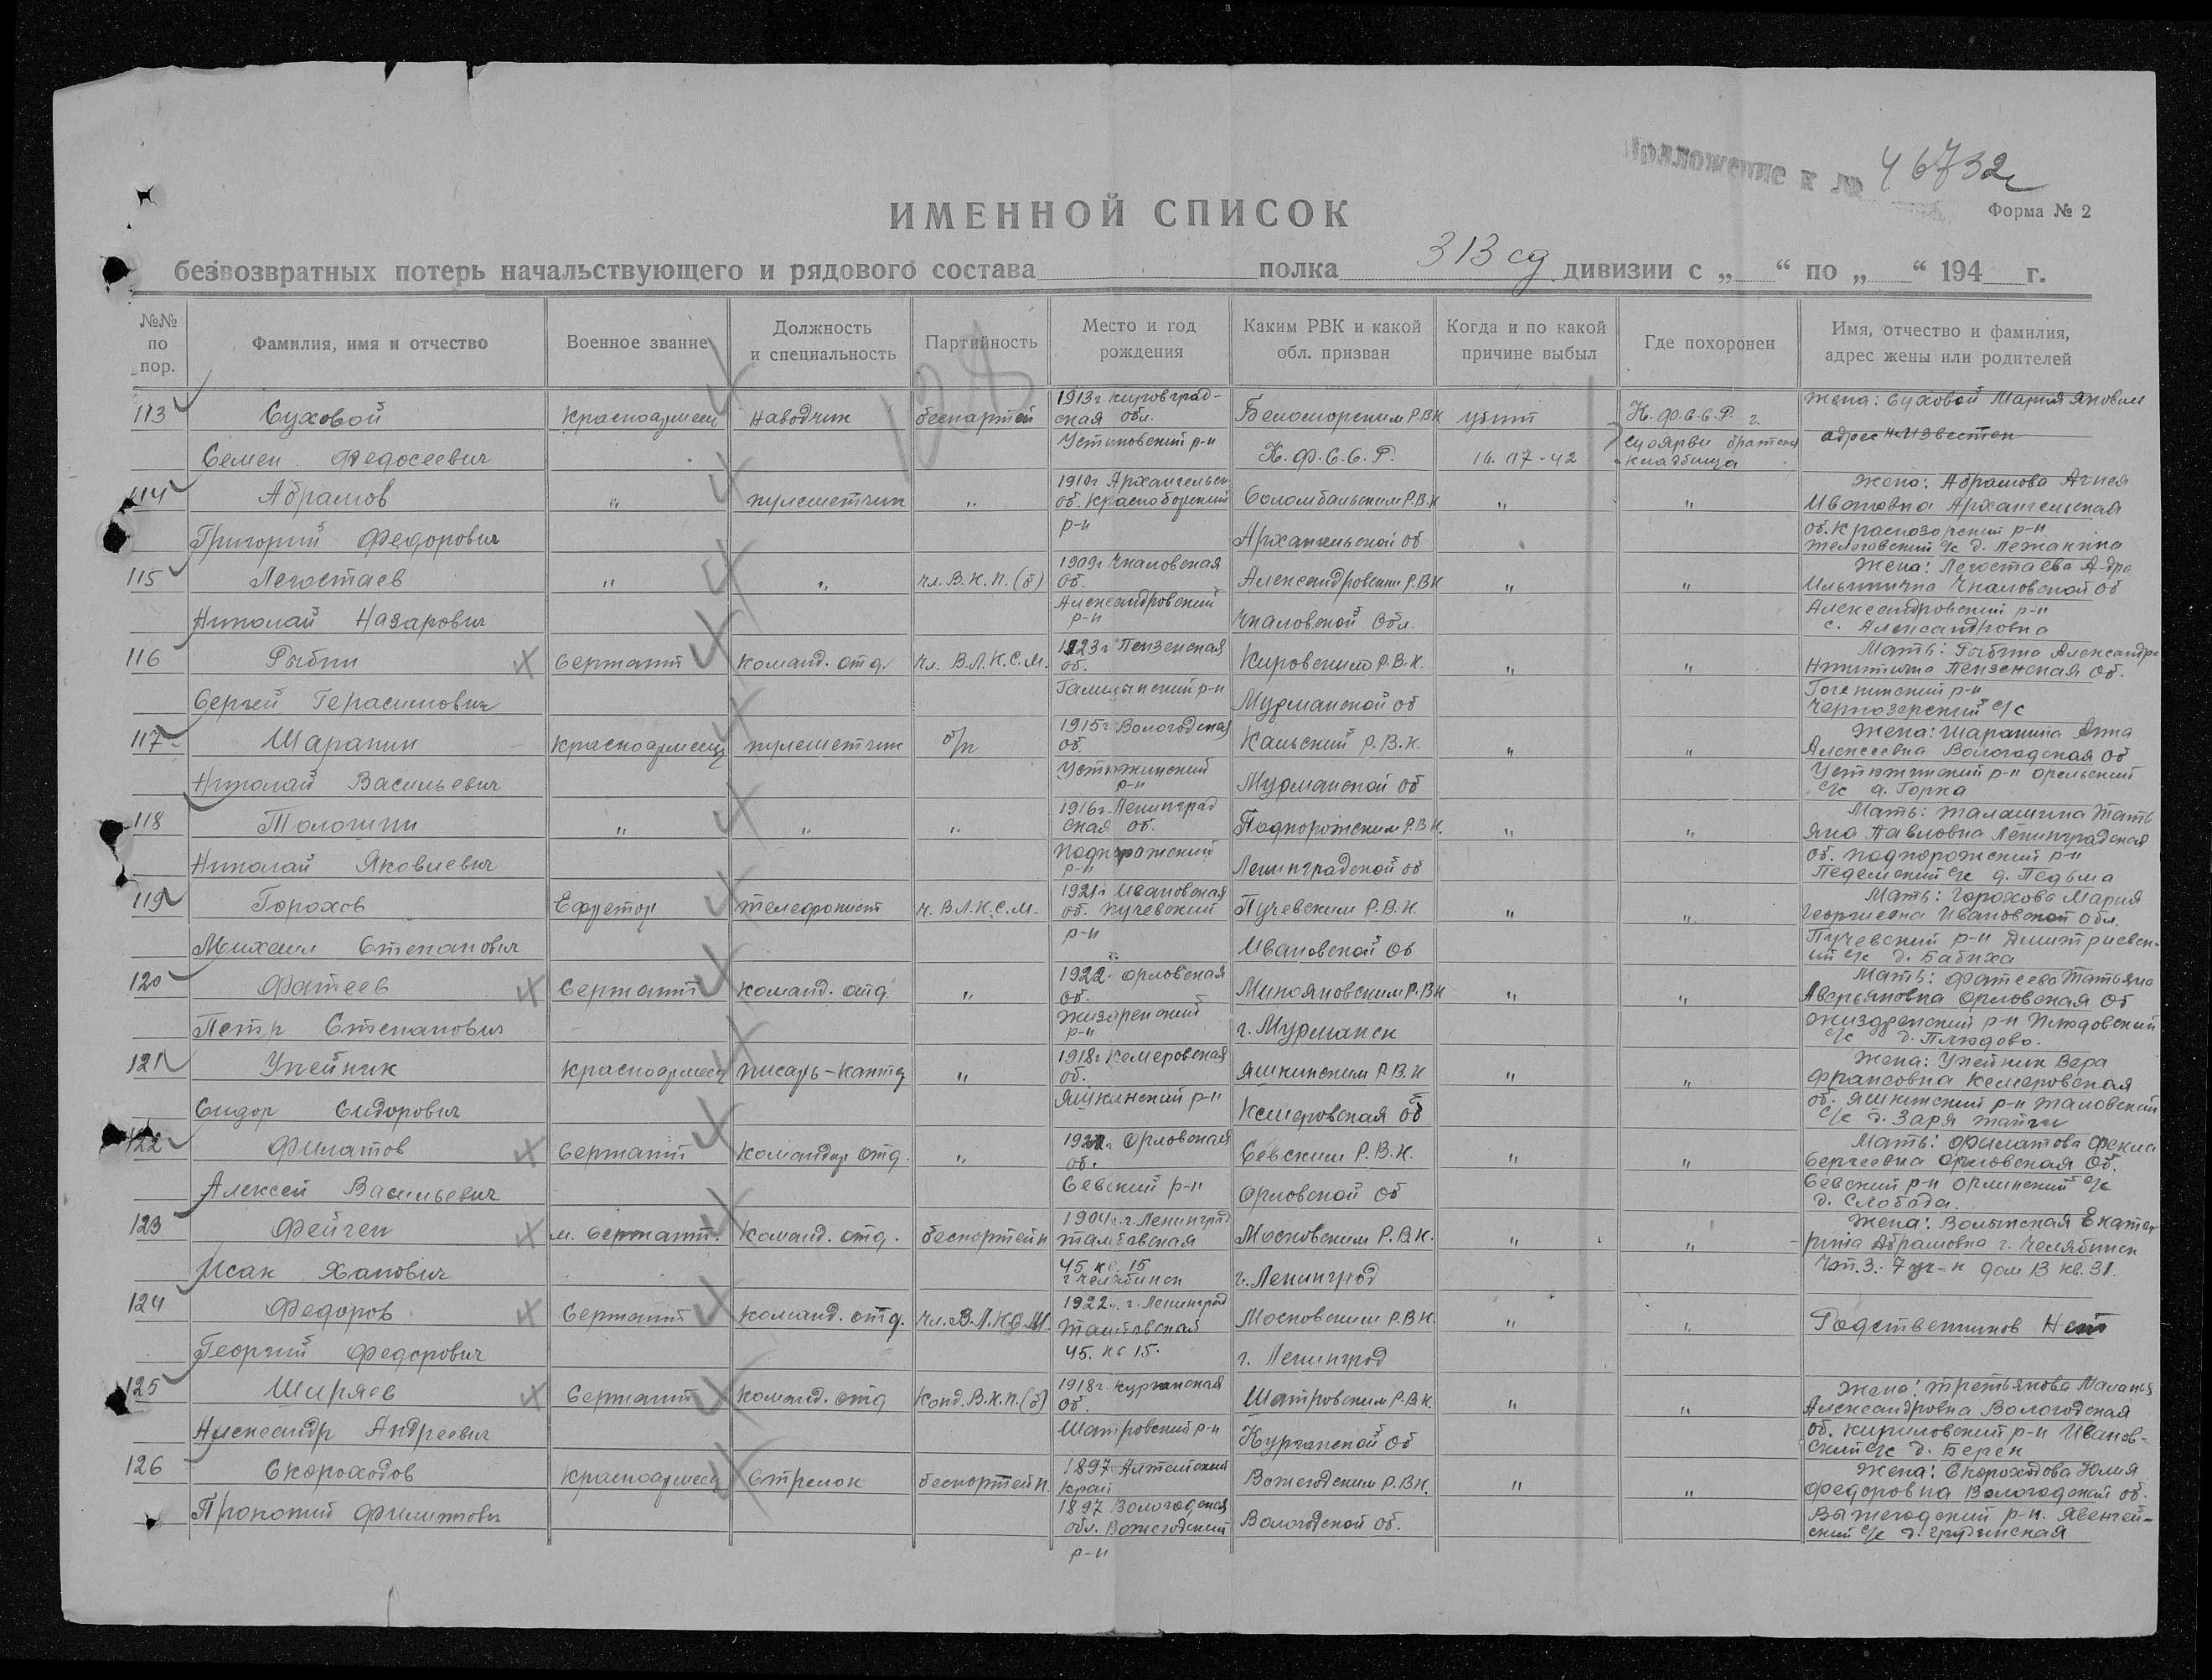 Приложение к № 46732с
Форма № 2
ИМЕННОЙ СПИСОК
безвозвратных потерь начальствующего и рядового состава полка 313 сд дивизии с „ “ по „ “ 194 г.
№№ по пор.
Фамилия, имя и отчество
Военное звание
Должность и специальность
Партийность
Место и год рождения
Каким РВК и какой обл. призван
Когда и по какой причине выбыл
Где похоронен
Имя, отчество и фамилия, адрес жены или родителей
128
113 Суховой Красноармеец наводчик беспартей 1913г Кировград- Беломорским Р.В.К убит К.Ф.С.С.Р. г. Жена: Суховой Мария Яковлев
ская обл.
Семен Федосеевич Устиновский р-н К.Ф.С.С.Р. 16.07-42 Суоярви братская кладбища адрес неизвестен
114 Абрамов " пулеметчик " 1910г Архангельск Соломбальским Р.В.К " " Жена: Абрамова Агнея
об. Красноборский Ивановна Архангельская
Григорий Федорович р-н Архангельской об об. Краснозорский р-н
с/с д. Лежакино
115 Легостаев " " чл. В.К.П.(б) 1909г Чкаловская Александровским Р.В.К " " Жена: Легостаева А-дра
об. Ильинична Чкаловской об
Николай Назарович Александровский р-н Чкаловской Обл. Александровский р-н
с. Александровка
116 Рыбин Сержант команд. отд. чл. В.Л.К.С.М. 1923г Пензенская Кировским Р.В.К. " " Мать: Рыбина Александра
об. Никитична Пензенская об.
Сергей Герасимович Галицынский р-н Мурманской об
Чернозерский с/с
117 Шарапин Красноармеец пулеметчик б/п 1915г Вологодская Кольский Р.В.К. " " Жена: Шарапина Анна
об. Алексеевна Вологодская об
Николай Васильевич Устюжинский р-н Мурманской об Устюжинский р-н Орельский
с/с д. Горка
118 Талогин " " " 1916г. Ленинград Подпорожским Р.В.К. " " Мать: Талашина Тать
ская об. яна Павловна Ленинградская
Николай Яковлевич Подпорожский р-н Ленинградской об об. Подпорожский р-н
с/с д. Педьма
119 Горохов Ефрейтор телефонист ч. В.Л.К.С.М. 1921г Ивановская Пучевским Р.В.К. " " Мать: Горохова Мария
об. Пучевский Георгиевна Ивановской обл.
Михаил Степанович р-н Ивановской об Пучевский р-н Дмитриевск-
ий с/с д. Бабиха
120 Фатеев Сержант команд. отд. " 1922г. Орловская Р.В.К " " Мать: Фатеева Татьяна
об. Аверьяновна Орловская об
Петр Степанович р-н г. Мурманск Жиздренский р-н Плюдовский
с/с д. Плюдово.
121 Улейник Красноармеец писарь - " 1918г Кемеровская Яшкинским Р.В.К " " Жена: Улейник Вера
об. Франсовна Кемеровская
Сидор Сидорович Яшкинский р-н Кемеровская об об. Яшкинский р-н Таловский
с/с д. Заря тайги
122 Филатов Сержант Командир отд. " Орловская Севским Р.В.К. " " Мать: Филатова Фекла
об. Сергеевна Орловская об.
Алексей Васильевич Севский р-н Орловской об Севский р-н Орлинский с/с
д. Слобода.
123 Фейген м. Сержант. команд. отд. беспортейн 1904г. г. Ленинград Московским Р.В.К. " " Жена: Волынская Екате
Тамбовская рина Абрамовна г. Челябинск
Исак Ханович 45 кв. 15 г. Ленинград 7 уч-к дом 13 кв. 31.
г Челябинск
124 Федоров Сержант команд. отд. чл. В.Л.К.С.М. 1922г. г. Ленинград Московским Р.В.К. " " Родственников Нет
Тамбовской
Георгий Федорович 45. кв 15. г. Ленинград
125 Ширяев Сержант команд. отд Канд. В.К.П.(б) 1918г. Курганская Шатровским Р.В.К. " " Жена: Третьякова Маланья
об. Александровна Вологодская
Александр Андреевич Шатровский р-н Курганской об об. Кириловский р-н Иванов-
ский с/с д. Берек
126 Скороходов Красноармеец Стрелок беспортейн. 1897 Алтайский Вожегодским Р.В.К. " " Жена: Скороходова Юлия
край Федоровна Вологодской об.
Прокопий Филиппович 1897 Вологодская Вологодской об. Вожегодский р-н. Явенгей-
обл. Вожегодский ский с/с
р-н